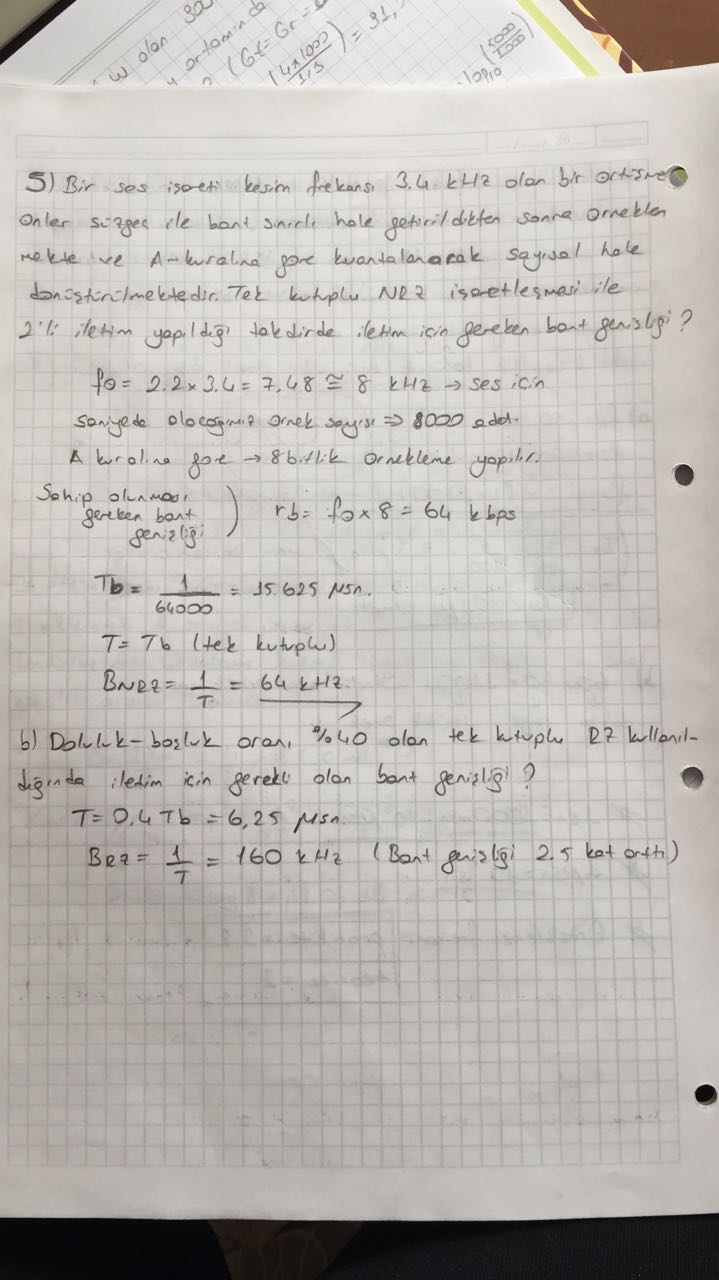 w olan
ortamında
(Gt=Gr=
(4x1000/1,3) = 31,
(5000/1000)
5) Bir ses işareti kesim frekansı 3.4 kHz olan bir örtüşme
önler süzgeç ile bant sınırlı hale getirildikten sonra örneklen
mekte ve A-kuralına göre kuantalanarak sayısal hale
dönüştürülmektedir. Tek kutuplu NRZ işaretleşmesi ile
2'li iletim yapıldığı takdirde iletim için gereken bant genişliği?
fo = 2.2 x 3.4 = 7,48 ≅ 8 kHz → ses için
saniyede alacağımız örnek sayısı ⇒ 8000 adet.
A kuralına göre → 8 bitlik örnekleme yapılır.
Sahip olunması
gereken bant
genişliği ) rb = fo x 8 = 64 kbps
Tb = 1/64000 = 15.625 µsn.
T = Tb (tek kutuplu)
BNRZ = 1/T = 64 kHz.
b) Doluluk-boşluk oranı %40 olan tek kutuplu RZ kullanıl-
dığında iletim için gerekli olan bant genişliği?
T = 0.4 Tb = 6,25 µsn.
BRZ = 1/T = 160 kHz (Bant genişliği 2.5 kat arttı)